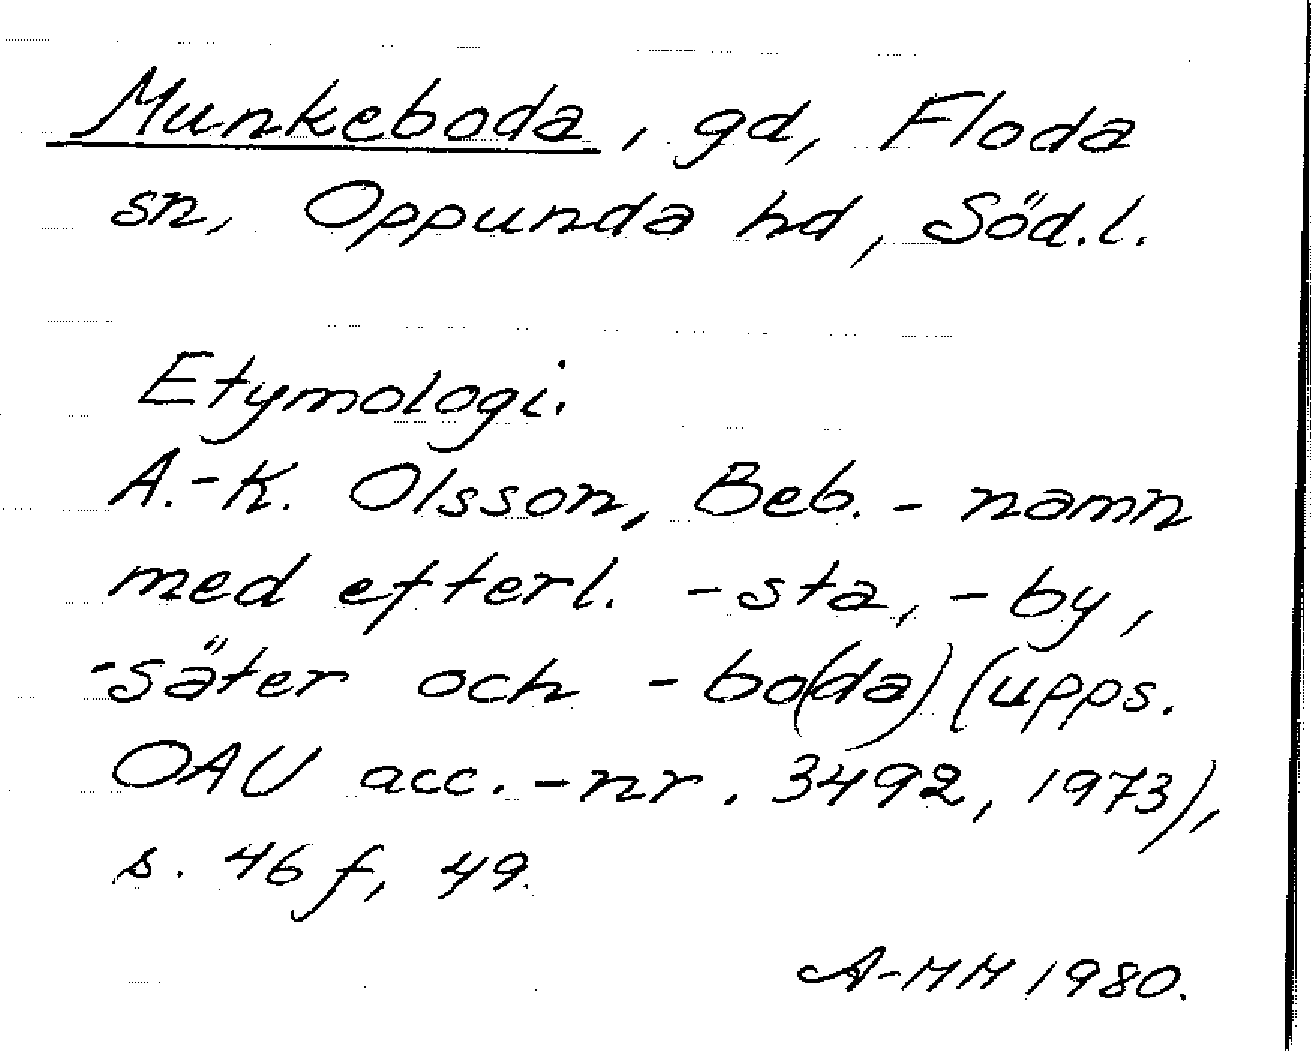 Munkeboda, gd, Floda
sn, Oppunda hd, Söd.l.
Etymologi.
A.-K. Olsson, Beb.-namn
med efterl. -sta, -by,
-säter och -bo(da) (upps.
OAU acc.-nr. 3492, 1973),
s. 46 f, 49.
A-MM 1980.